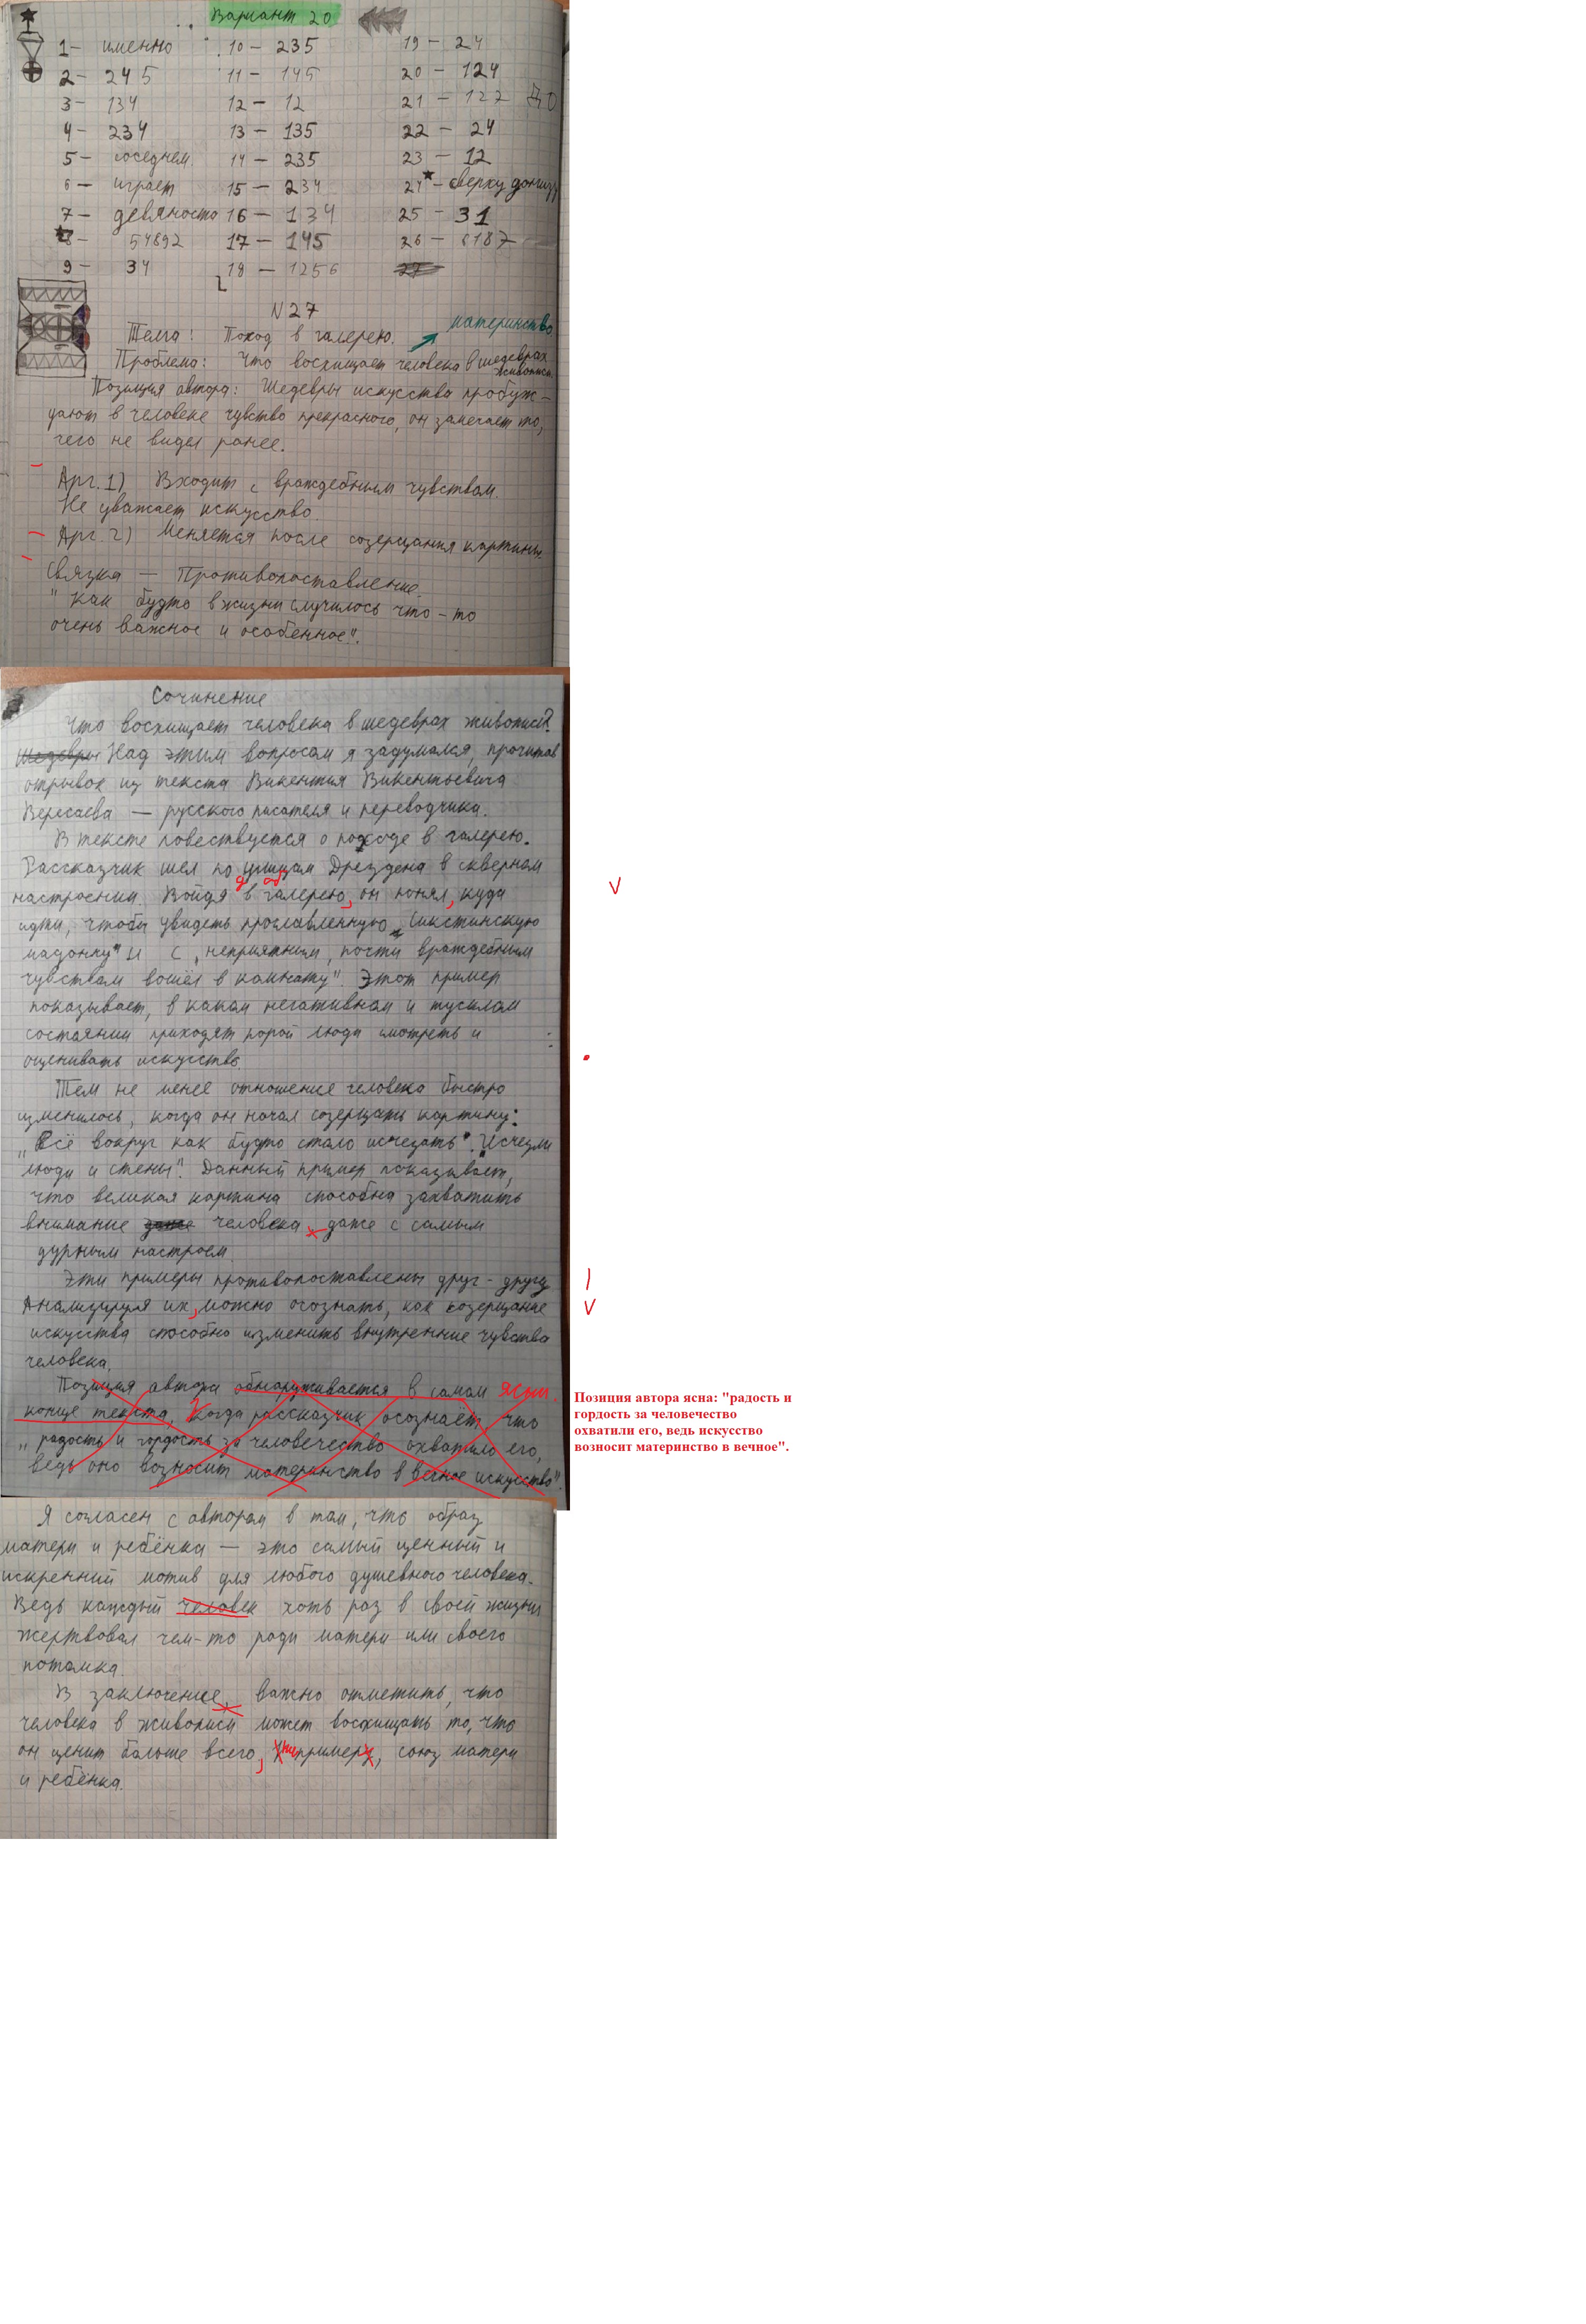 Вариант 20
1 - именно
2 - 245
3 - 134
4 - 234
5 - соседнем
6 - играет
7 - девяносто
8 - 54892
9 - 34
10 - 235
11 - 145
12 - 12
13 - 135
14 - 235
15 - 234
16 - 134
17 - 145
18 - 1256
19 - 24
20 - 124
21 - 127
22 - 24
23 - 12
24 - сверху донизу
25 - 31
26 - 6187
N27
Тема: Поход в галерею.
материнство.
Проблема: Что восхищает человека в шедеврах
живописи.
Позиция автора: Шедевры искусства пробуж-
дают в человеке чувство прекрасного, он замечает то,
чего не видел ранее.
Арг. 1) Входит с враждебным чувством.
Не уважает искусство.
Арг. 2) Меняется после созерцания картины.
Связка — Противопоставление.
"Как будто в жизни случилось что-то
очень важное и особенное".
Сочинение
Что восхищает человека в шедеврах живописи?
Шедевры Над этим вопросом я задумался, прочитав
отрывок из текста Викентия Викентьевича
Вересаева — русского писателя и переводчика.
В тексте повествуется о походе в галерею.
Рассказчик шел по улицам Дрездена в скверном
настроении. Войдя в галерею, он понял, куда
идти, чтобы увидеть прославленную „Сикстинскую
мадонну" и с „неприятным, почти враждебным
чувством вошёл в комнату". Этот пример
показывает, в каком негативном и тусклом
состоянии приходят порой люди смотреть и
оценивать искусство.
Тем не менее отношение человека быстро
изменилось, когда он начал созерцать картину:
„Всё вокруг как будто стало исчезать". Исчезли
люди и стены". Данный пример показывает,
что великая картина способна захватить
внимание даже человека даже с самым
дурным настроем.
Эти примеры противопоставлены друг-другу.
Анализируя их, можно осознать, как созерцание
искусства способно изменить внутренние чувства
человека.
Позиция автора обнаруживается в самом ясна
конце текста, когда рассказчик осознаёт, что
„радость и гордость за человечество охватило его,
ведь оно возносит материнство в вечное искусство".
Позиция автора ясна: "радость и
гордость за человечество
охватили его, ведь искусство
возносит материнство в вечное".
Я согласен с автором в том, что образ
матери и ребёнка — это самый ценный и
искренний мотив для любого душевного человека.
Ведь каждый человек хоть раз в своей жизни
жертвовал чем-то ради матери или своего
потомка.
В заключение, важно отметить, что
человека в живописи может восхищать то, что
он ценит больше всего, союз матери
и ребёнка.